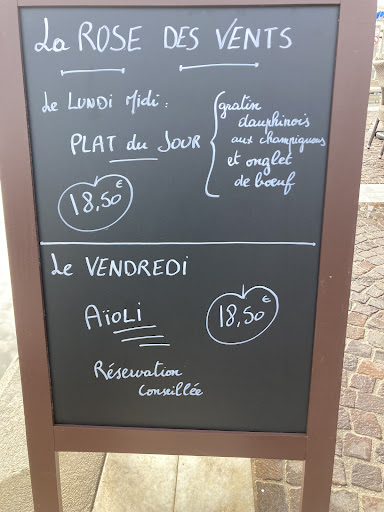 La ROSE DES VENTS
Le LUNDI Midi :
PLAT du JOUR
gratin
dauphinois
aux champignons
et onglet
de boeuf
18,50€
Le VENDREDI
AïOLi
18,50€
Réservation
conseillée